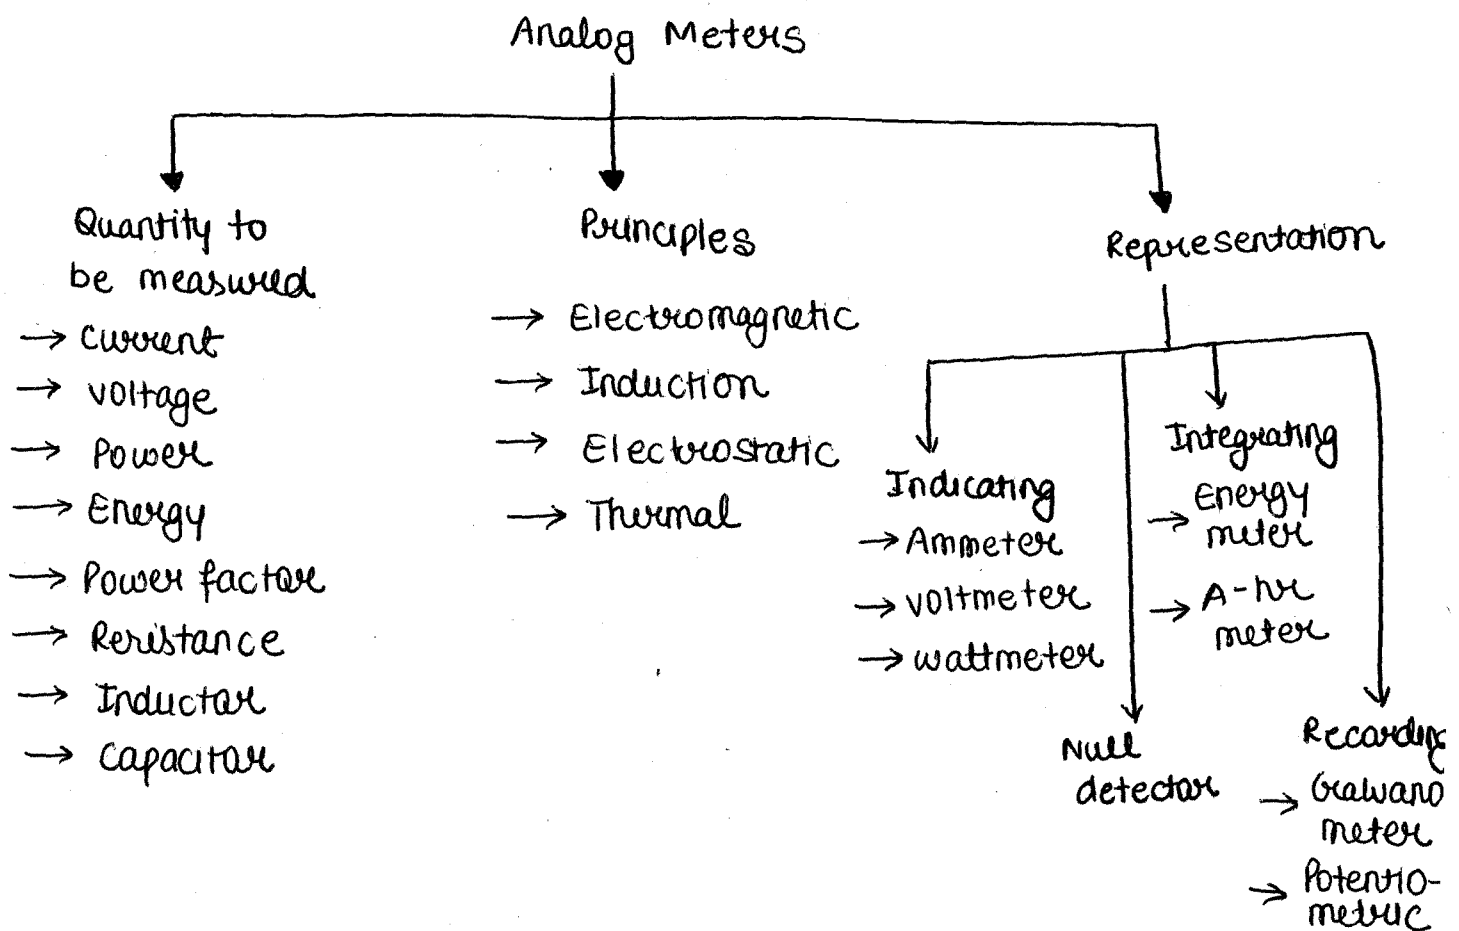 Analog Meters
Quantity to
be measured
→ Current
→ Voltage
→ Power
→ Energy
→ Power factor
→ Resistance
→ Inductor
→ Capacitor
Principles
→ Electromagnetic
→ Induction
→ Electrostatic
→ Thermal
Representation
Indicating
→ Ammeter
→ voltmeter
→ wattmeter
Null
detector
Integrating
→ Energy
meter
→ A-hr
meter
Recording
→ Galvano
meter
→ Potentio-
metric